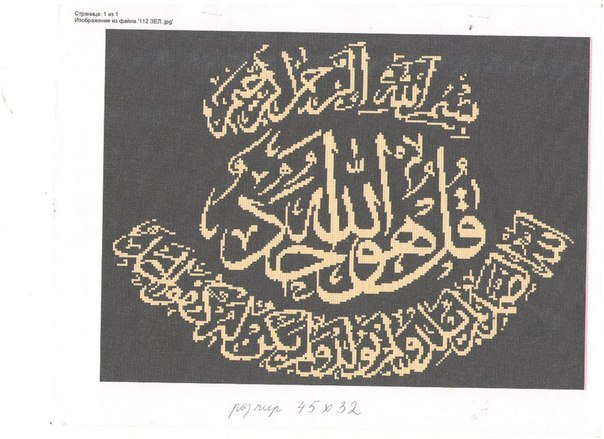 Страница: 1 из 1
Изображение из файла '112 ЗЕЛ..jpg'
بسم الله الرحمن الرحيم
قل هو الله أحد
الله الصمد لم يلد ولم يولد ولم يكن له كفوا أحد
размер 45 х 32